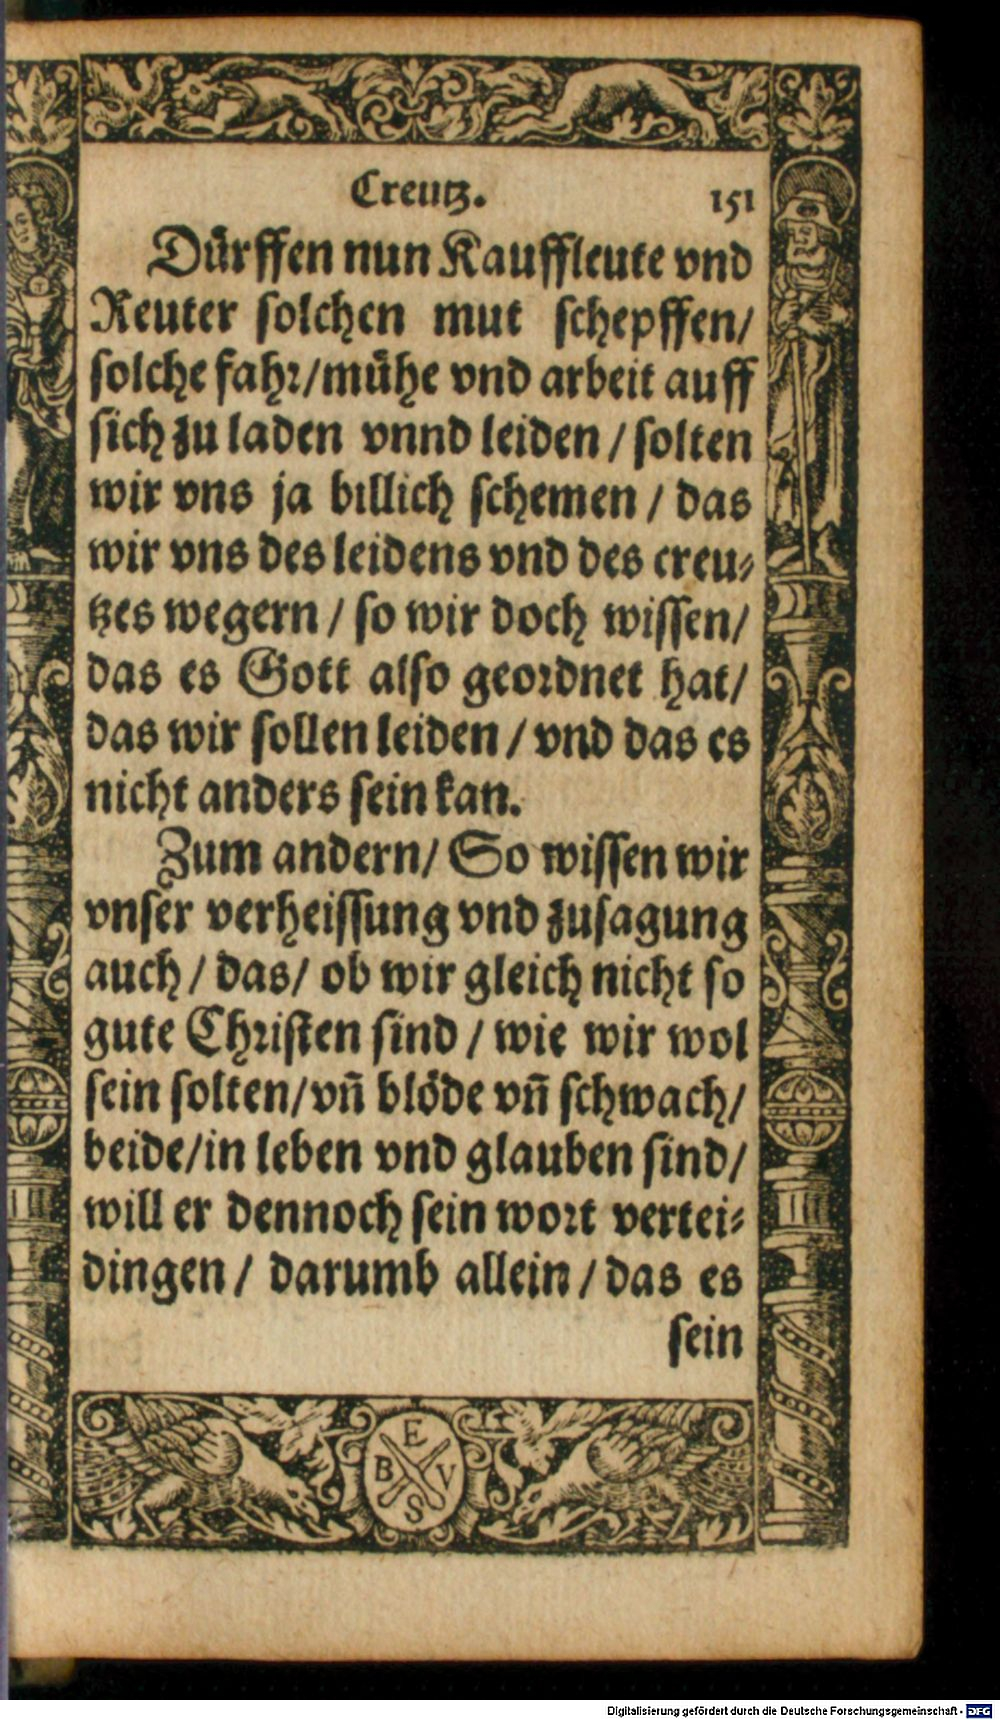 Creutz. 151
Dürffen nun Kauffleute vnd
Reuter solchen mut schepffen/
solche fahr/mühe vnd arbeit auff
sich zu laden vnnd leiden / solten
wir vns ja billich schemen / das
wir vns des leidens vnd des creu-
tzes wegern / so wir doch wissen/
das es Gott also geordnet hat/
das wir sollen leiden / vnd das es
nicht anders sein kan.
Zum andern/ So wissen wir
vnser verheissung vnd zusagung
auch / das/ ob wir gleich nicht so
gute Christen sind / wie wir wol
sein solten/vn̄ blöde vn̄ schwach/
beide/in leben vnd glauben sind/
will er dennoch sein wort vertei-
dingen / darumb allein / das es
sein
E
B V
S
Digitalisierung gefördert durch die Deutsche Forschungsgemeinschaft - DFG